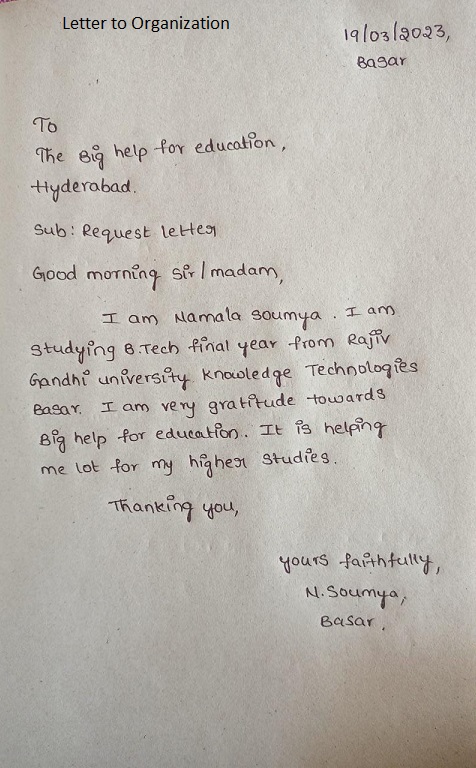 Letter to Organization
19/03/2023,
Basar
To
The Big help for education,
Hyderabad.
Sub: Request letter
Good morning sir/madam,
I am Namala Soumya. I am
studying B.Tech final year from Rajiv
Gandhi university knowledge Technologies
Basar. I am very gratitude towards
Big help for education. It is helping
me lot for my higher studies.
Thanking you,
yours faithfully,
N.Soumya,
Basar.